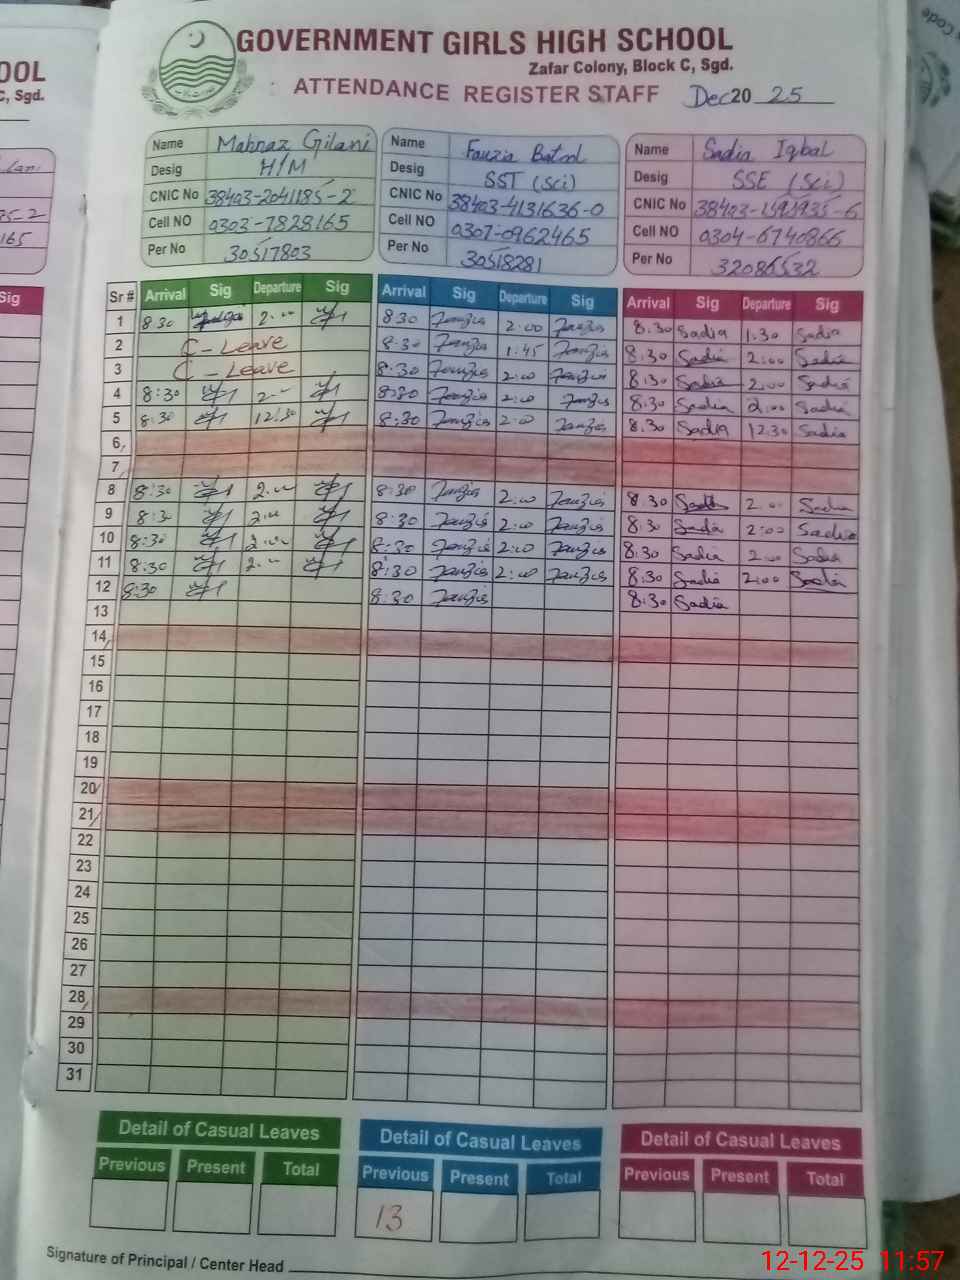 GOVERNMENT GIRLS HIGH SCHOOL
Zafar Colony, Block C, Sgd.
ATTENDANCE REGISTER STAFF Dec 20 25
Name Mahnaz Gilani Name Fauzia Batool Name Sadia Iqbal
Desig H/M Desig SST (Sci) Desig SSE (Sci)
CNIC No 38403-2041185-2 CNIC No 38403-4131636-0 CNIC No 38403-1593935-6
Cell NO 0303-7828165 Cell NO 0307-0962465 Cell NO 0304-6740866
Per No 30517803 Per No 30518281 Per No 32086532
Sr # Arrival Sig Departure Sig Arrival Sig Departure Sig Arrival Sig Departure Sig
1 8:30 2:00 8:30 Fauzia 2:00 Fauzia 8:30 Sadia 1:30 Sadia
2 C-Leave 8:30 Fauzia 1:45 Fauzia 8:30 Sadia 2:00 Sadia
3 C-Leave 8:30 Fauzia 2:00 Fauzia 8:30 Sadia 2:00 Sadia
4 8:30 2- 8:30 Fauzia 2:00 Fauzia 8:30 Sadia 2:00 Sadia
5 8:30 12:30 8:30 Fauzia 2:00 Fauzia 8:30 Sadia 12:30 Sadia
6
7
8 8:30 2:00 8:30 Fauzia 2:00 Fauzia 8:30 Sadia 2:00 Sadia
9 8:30 2:00 8:30 Fauzia 2:00 Fauzia 8:30 Sadia 2:00 Sadia
10 8:30 2:00 8:30 Fauzia 2:00 Fauzia 8:30 Sadia 2:00 Sadia
11 8:30 2:00 8:30 Fauzia 2:00 Fauzia 8:30 Sadia 2:00 Sadia
12 8:30 8:30 Fauzia 8:30 Sadia
13
14
15
16
17
18
19
20
21
22
23
24
25
26
27
28
29
30
31
Detail of Casual Leaves Detail of Casual Leaves Detail of Casual Leaves
Previous Present Total Previous Present Total Previous Present Total
13
Signature of Principal / Center Head
12-12-25 11:57